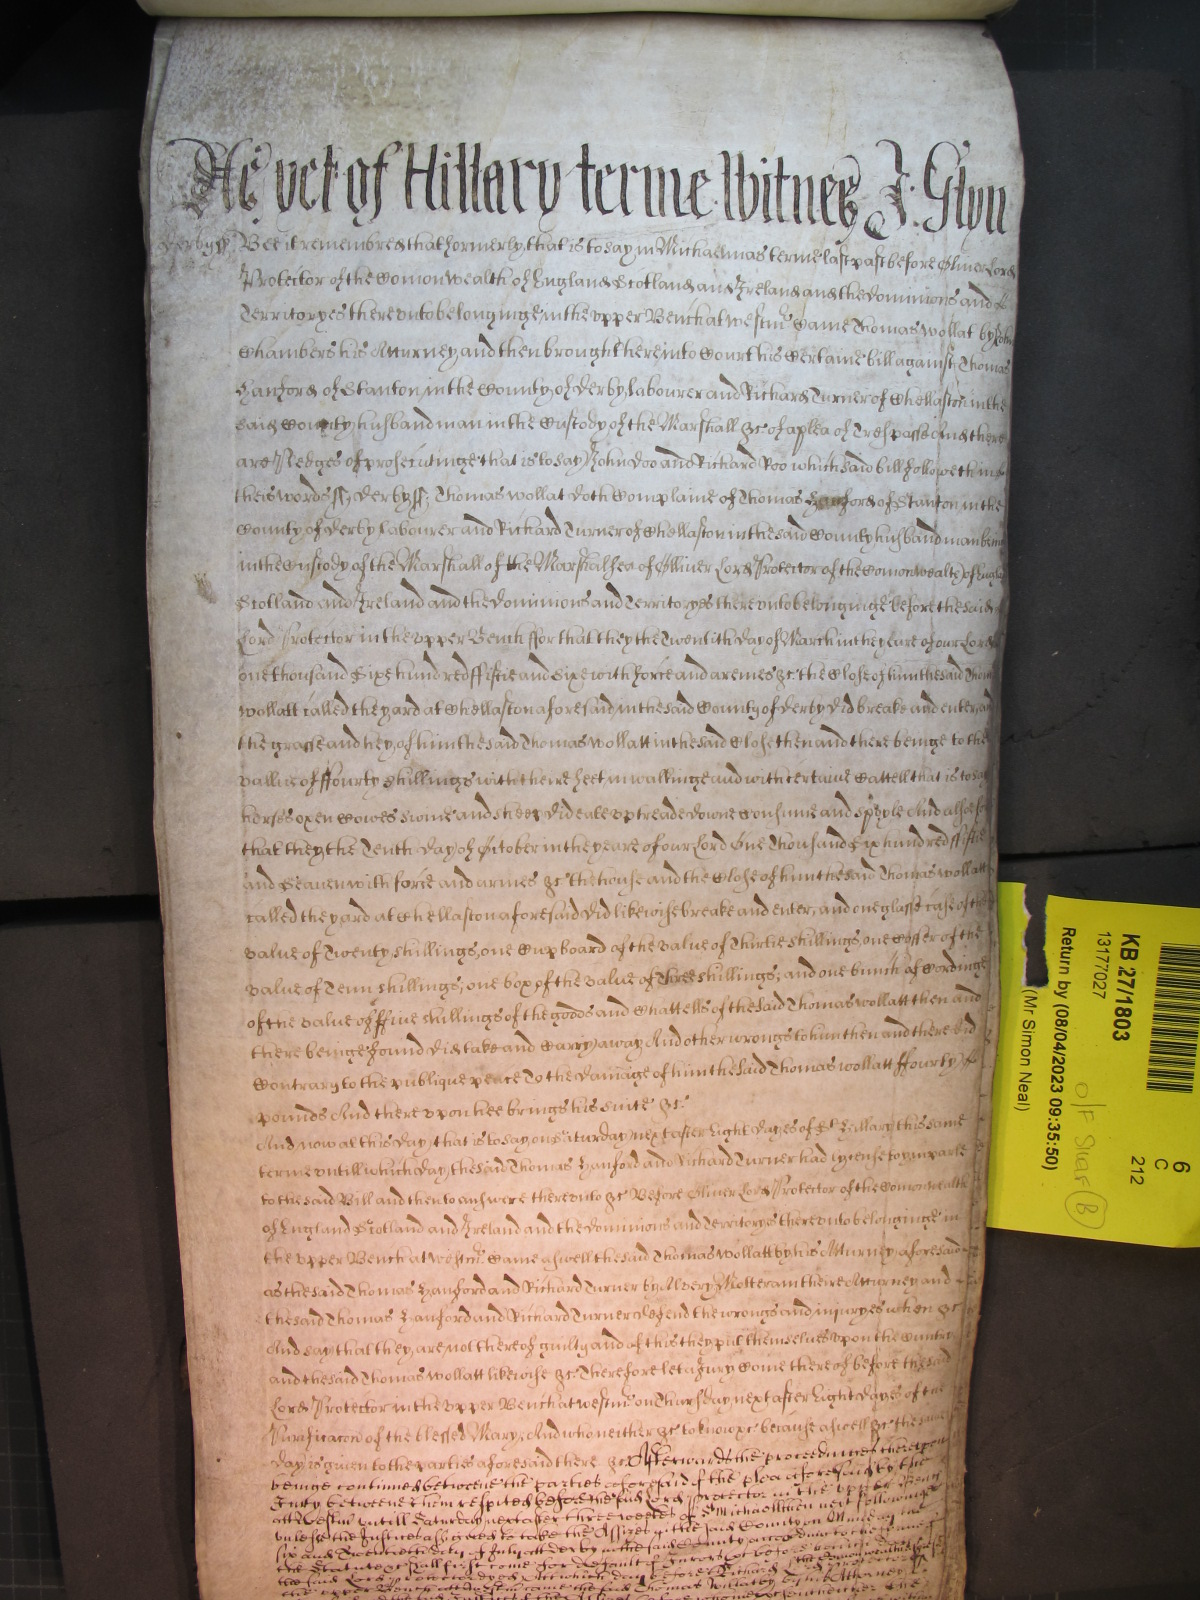 yet of Hillary terme Witnes J: Glyn
Derbyss Bee it remembred that formerly, that is to say in Michaelmas terme last past before Oliver Lord
Protector of the Comon Wealth of England Scotland and Ireland and the dominions and
Territoryes thereunto belonginge, in the upper Bench at Westmr Came Thomas Wollat by John
Chambers his Atturney and then brought here into Court his Certaine bill against Thomas
Hanford of Stanton in the County of Derby Labourer and Richard Turner of Chellaston in the
said County husbandman in the Custody of the Marshall &c of a plea of Trespasse And there
are Pledges of prosecutinge that is to say John Doo and Richard Roo which said bill followeth in
theis words ss; Derbyss; Thomas Wollat doth Complaine of Thomas Hanford of Stanton in the
County of Derby Labourer and Richard Turner of Chellaston in the said County husbandman being
in the Custody of the Marshall of the Marshalsea of Olliver Lord Protector of the Comonwealth of England
Scotland and Ireland and the dominions and Territoryes thereunto belonginge before the said
Lord Protector in the upper Bench ffor that they the Twentith day of March in the yeare of our Lord
one thousand Sixe hundred ffiftie and Sixe with force and armes &c the Close of him the said Thomas
Wollatt called the yard at Chellaston aforesaid in the said County of Derby did breake and enter, and
the grasse and hey, of him the said Thomas Wollatt in the said Close then and there beinge to the
vallue of ffourty shillings with theire feet in walkinge and with certaine Cattell that is to say
horses oxen Cowes swine and sheep did eate up treade downe Consume and spoyle And also for
that they the Tenth day of October in the yeare of our Lord One Thousand Six hundred ffiftie
and Seaven with force and armes &c the house and the Close of him the said Thomas Wollatt
called the yard at Chellaston aforesaid did likewise breake and enter, and one glasse case of the
value of Twenty shillings, one Cupboard of the value of Thirtie shillings, one Coffer of the
value of Tenn shillings, one box of the value of Three shillings, and one bunch of Cordinge
of the value of ffive shillings of the goods and Chattells of the said Thomas Wollatt then and
there beinge found did take and Carry away And other wrongs to him then and there did
Contrary to the publique peace To the damage of him the said Thomas Wollatt ffourty
pounds And there upon hee brings his suite &c.
And now at this day, that is to say on Saturday next after Eight dayes of St. Hillary this same
terme untill which day, the said Thomas Hanford and Richard Turner had lycense to imparle
to the said Bill and then to answere thereunto &c Before Oliver Lord Protector of the Comonwealth
of England Scotland and Ireland and the dominions and Territoryes thereunto belonginge in
the upper Bench at Westmr. Came aswell the said Thomas Wollatt by his Atturney aforesaid
as the said Thomas Hanford and Richard Turner by Alvery Motteram theire Atturney and
the said Thomas Hanford and Richard Turner defend the wrongs and injuryes when &c
And say that they, are not thereof guilty and of this they put themselves upon the Cuntry
and the said Thomas Wollatt likewise &c Therefore let a Jury Come thereof before the said
Lord Protector in the upper Bench at Westmr. on Thursday next after Eight dayes of the
Purificacon of the blessed Mary, And who neither &c to know &c because aswell &c the same
day is given to the parties aforesaid there &c Afterwards the proceedinges thereupon
beinge continued betweene the parties aforesaid of the plea aforesaid by the
Jury betweene them respited before the said Lord Protector in the upper Bench
att Westmr untill Saturday next after three weekes of St Michaell then next followinge
unlesse the Justices assigned to take the Assizes in the said County on Munday the
six and Twentieth day of July att Derby in the said County accordinge to the forme of
the Statute &c shall first come for default of Jurors &c
KB 27/1803
13177027
Return by (08/04/2023 09:35:50)
(Mr Simon Neal)
6
C
212
O/F Shelf B